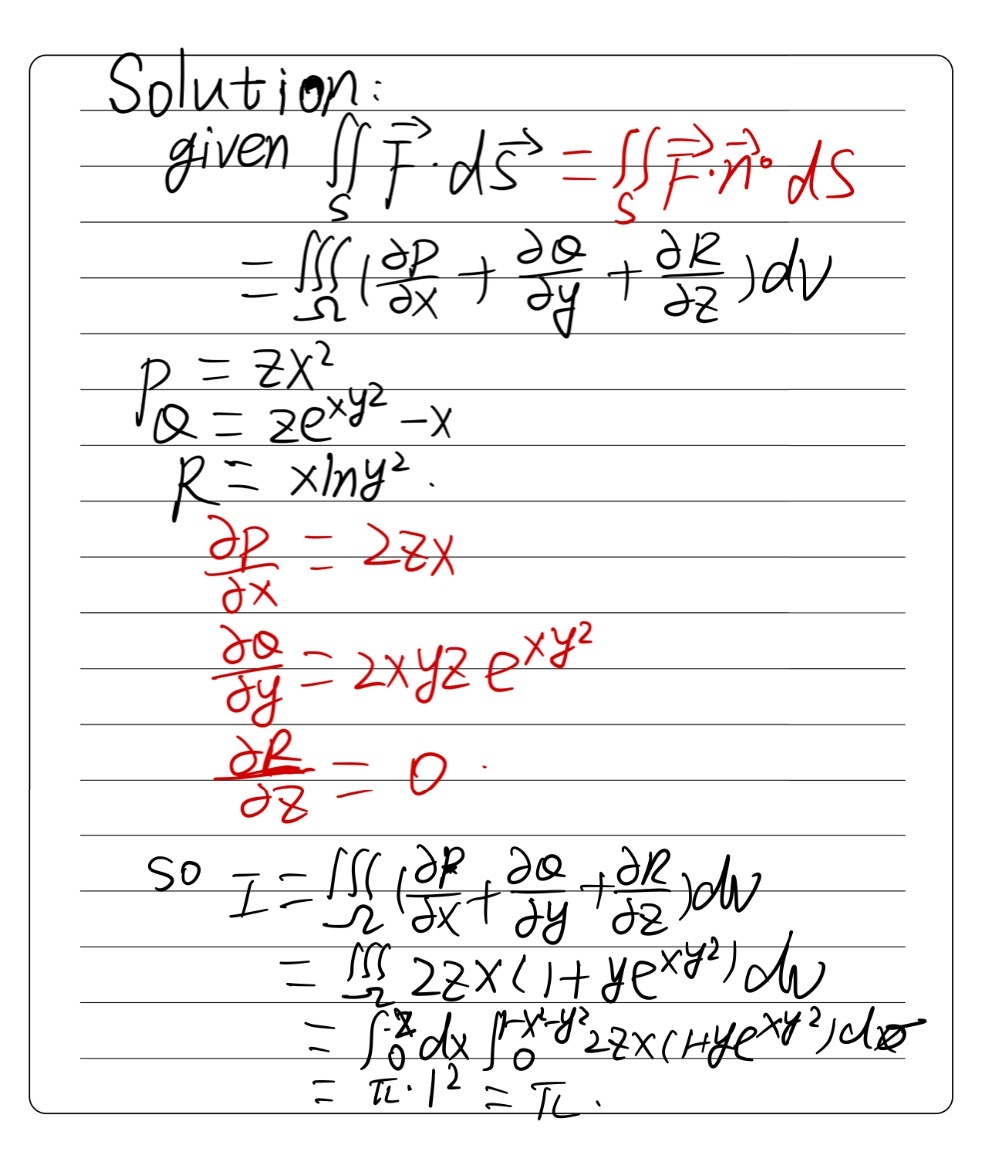 Solution:
given ∬_S F⃗·dS⃗ = ∬_S F⃗·n⃗° dS
= ∭_Ω (∂P/∂x + ∂Q/∂y + ∂R/∂z) dv
P = zx²
Q = ze^{xy²} - x
R = xlny².
∂P/∂x = 2zx
∂Q/∂y = 2xyz e^{xy²}
∂R/∂z = 0.
so I = ∭_Ω (∂P/∂x + ∂Q/∂y + ∂R/∂z) dv
= ∭_Ω 2zx(1+ye^{xy²}) dv
= ∫_0 dx ∫_0^{1-x²-y²} 2zx(1+ye^{xy²}) d
= π·1² = π.